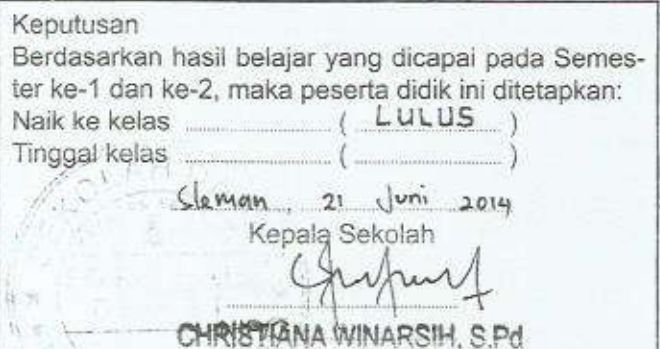 Keputusan
Berdasarkan hasil belajar yang dicapai pada Semes-
ter ke-1 dan ke-2, maka peserta didik ini ditetapkan:
Naik ke kelas .................... ( LULUS )
Tinggal kelas .................... ( .................... )
Sleman, 21 Juni 2014
Kepala Sekolah
CHRISTIANA WINARSIH, S.Pd